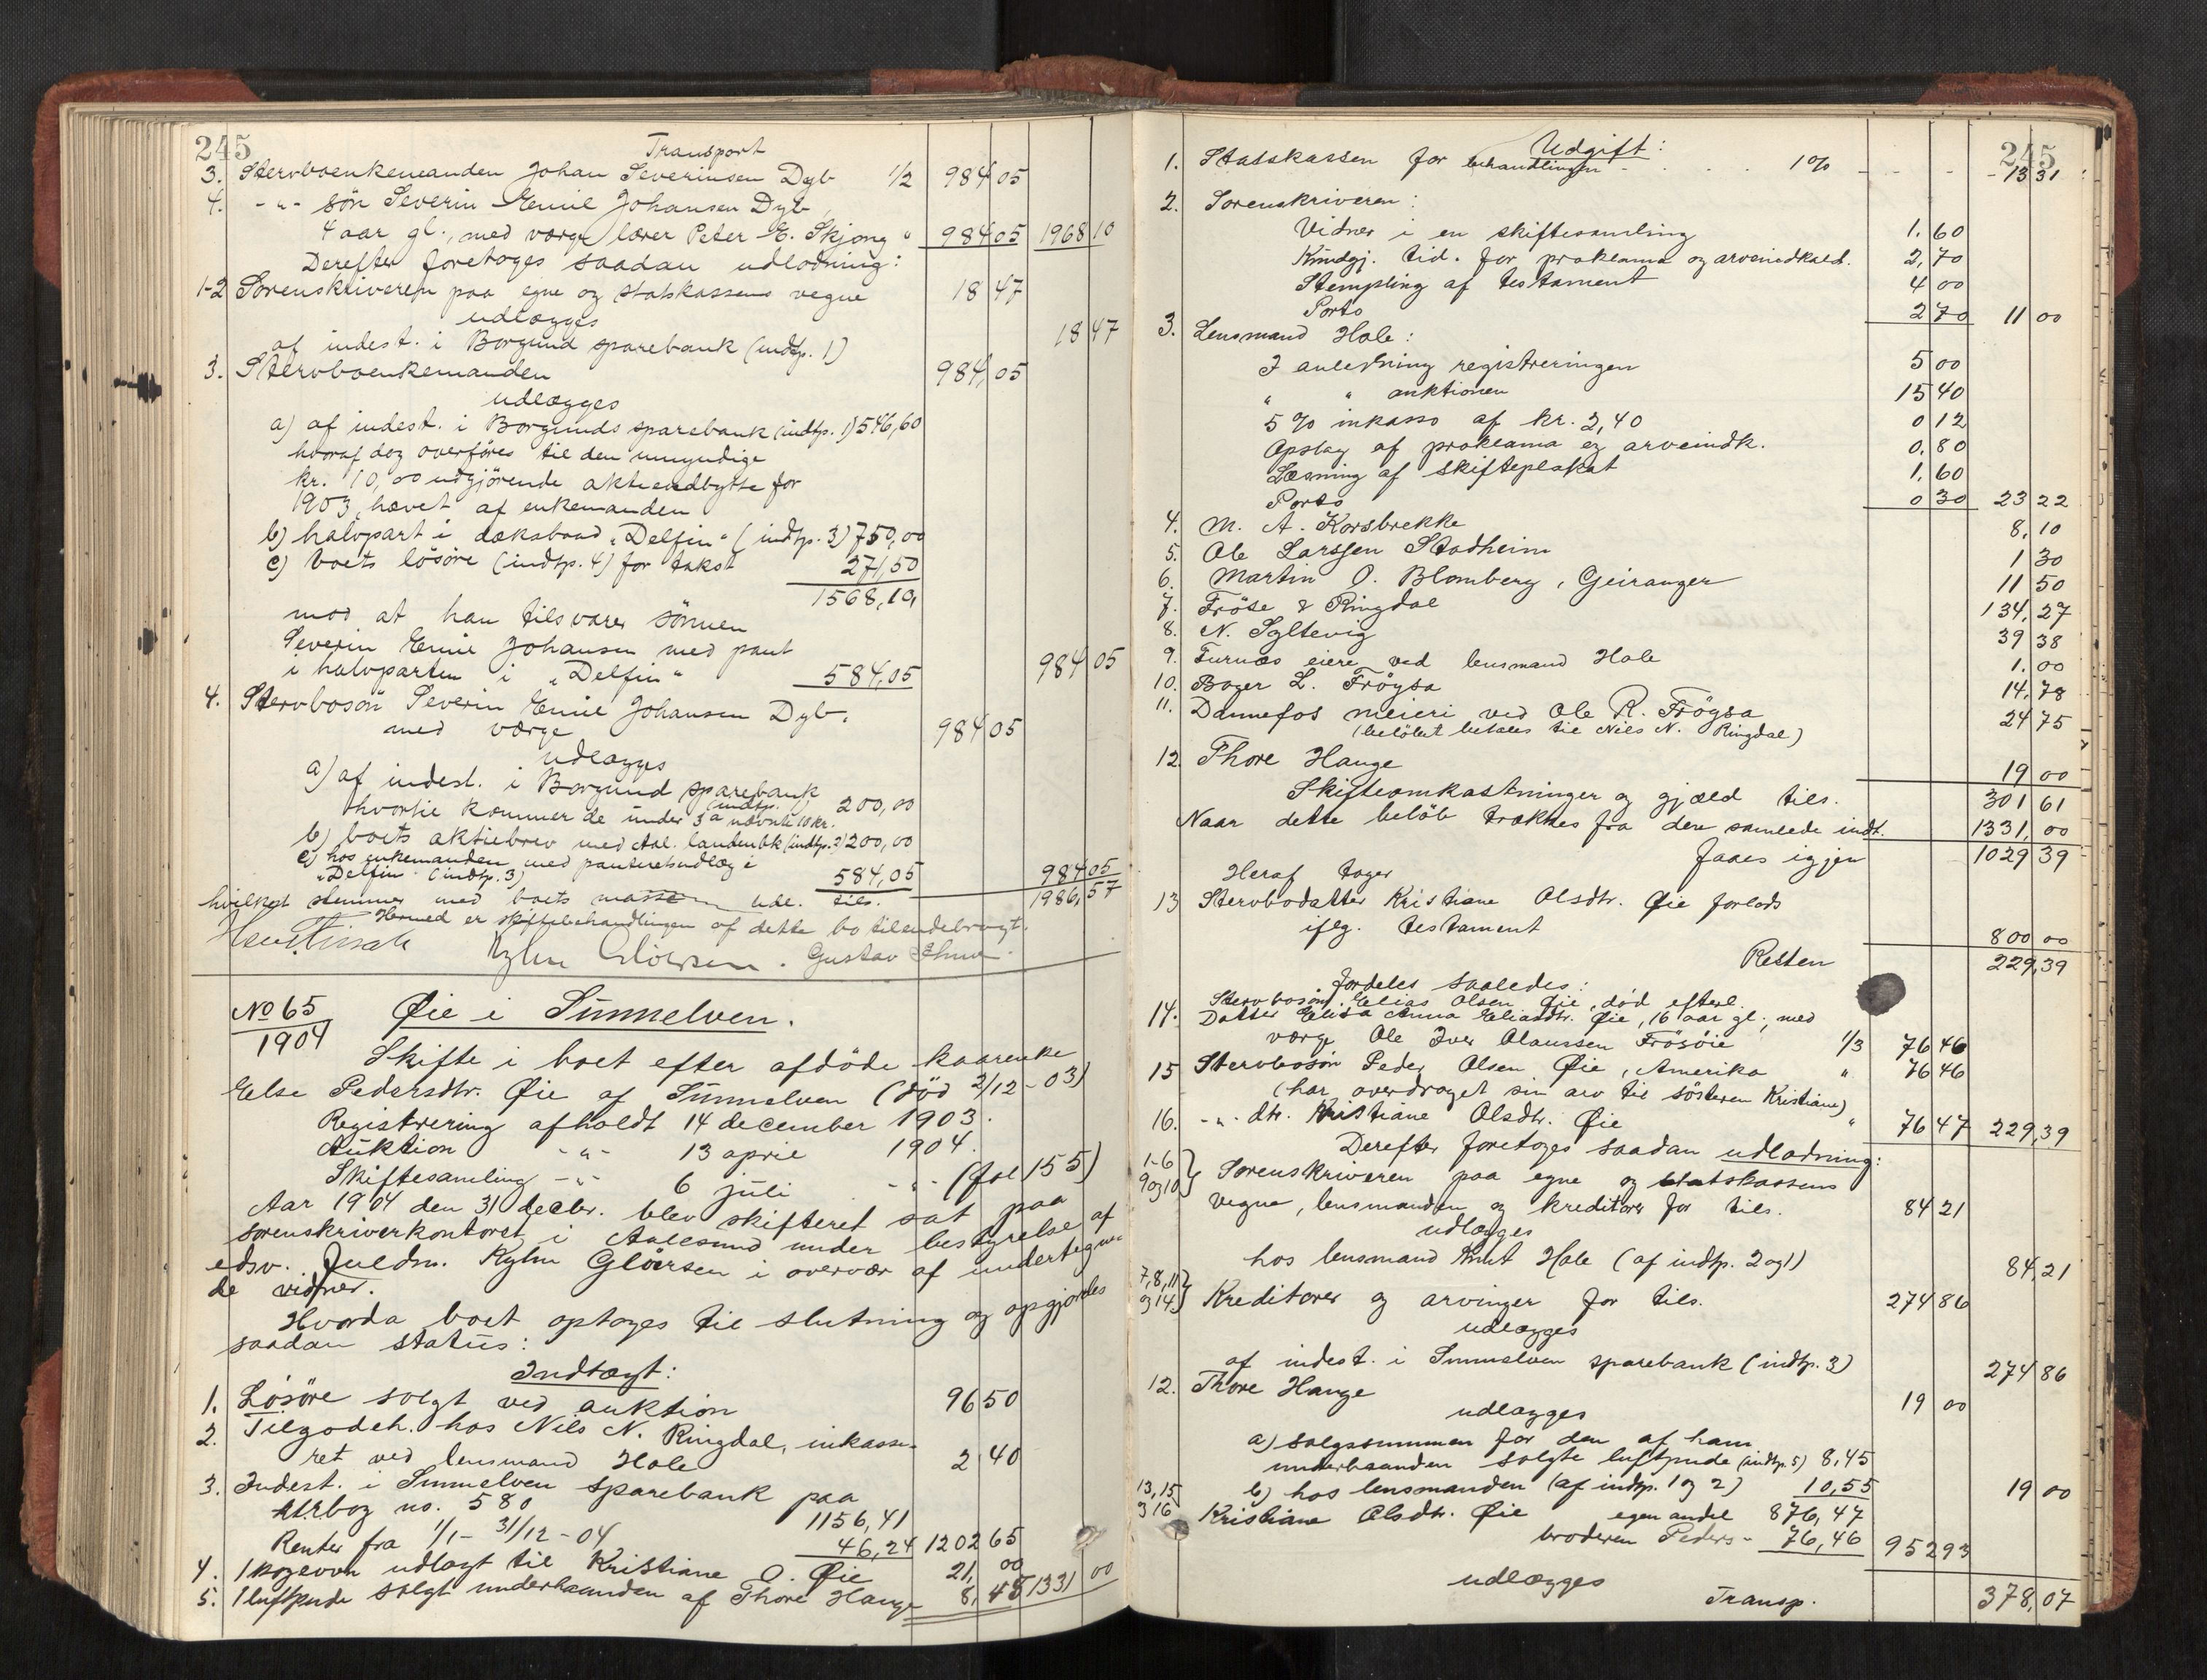 245
Transport
3. Stervboenkemanden Johan Severinsen Dyb 1/2 984 05
4. -"- sön Severin Emil Johansen Dyb,
4 aar gl., med værge lærer Peter E. Skjong " 984 05 1968 10
Derefter foretoges saadan udlodning:
1-2 Sorenskriveren paa egne og statskassens vegne 18 47
udlægges
af indest. i Borgund sparebank (indtp. 1) 18 47
3. Stervboenkemanden 984,05
udlægges
a) af indest. i Borgunds sparebank (indtp. 1) 546,60
hvoraf dog overföres til den umyndige
kr. 10,00 udgjörende aktieudbytte for
1903, hævet af enkemanden
b) halvpart i dæksbaad "Delfin" (indtp. 3) 750,00
c) boets lösöre (indtp. 4) for takst 271,50
1568,10,
mod at han tilsvarer sönnen
Severin Emil Johansen med pant
i halvparten i "Delfin" 584,05 984 05
4. Stervbosön Severin Emil Johansen Dyb.
med værge 984 05
udlægges
a) af indest. i Borgund sparebank
(indtp. 1) 200,00
hvortil kommer de under 3 a nævnte 10 kr.
b) boets aktiebrev med Aal. landmbk (indtp. 2) 200,00
c) hos enkemanden med panteretsudlæg i
"Delfin" (indtp. 3) 584,05 984 05
hvilket stemmer med boets masse udl. tils. 1986,57
Hermed er skiftebehandlingen af dette bo tilendebragt.
Kylm Gløersen. Gustav
No 65
1904
Øie i Sunnelven.
Skifte i boet efter afdöde kaarenke
Else Pedersdtr. Øie af Sunnelven (död 2/12-03)
Registrering afholdt 14 december 1903.
Auktion -"- 13 april 1904.
Skiftesamling -"- 6 juli -"- (fol 155)
Aar 1904 den 31 decbr. blev skifteret sat paa
sorenskriverkontoret i Aalesund under bestyrelse af
edsv. fuldm. Kylm Gløersen i overvær af undertegne-
de vidner.
Hvorda boet optoges til slutning og opgjordes
saadan status:
Indtægt:
1. Lösöre solgt ved auktion 96 50
2. Tilgodeh. hos Nils N. Ringdal, inkasse-
ret ved lensmand Hole 2 40
3. Indest. i Sunnelven sparebank paa
ktrbog no. 580 1156,41
Renter fra 1/1 - 31/12-04 46,24 1202 65
4. 1 kogeovn udlagt til Kristiane O. Øie 21,00
5. 1 luftpude solgt underhaanden af Thore Hauge 8,45 1331 00
245
Udgift:
1. Statskassen for behandlingen - . . . 1% - - - 13 31
2. Sorenskriveren:
Vidner i en skiftesamling 1.60
Kundgj. tid. for proklama og arveindkald. 2,70
Stempling af testament 4 00
Porto 2 70 11 00
3. Lensmand Hole:
I anledning registreringen 5 00
" " auktionen 15 40
5 % inkasso af kr. 2,40 0 12
Opslag af proklama og arveindk. 0.80
Læsning af skifteplakat 1,60
Porto 0 30 23 22
4. M. A. Korsbrekke 8,10
5. Ole Larssen Stadheim 1 30
6. Martin O. Blomberg, Geiranger 11 50
7. Fröse & Ringdal 134,27
8. N. Syltevig 39 38
9. Furnæs eiere ved lensmand Hole 1.00
10. Bager L. Fröysa 14,78
11. Dannefos meieri ved Ole R. Fröysa 24 75
(belöbet betales til Nils N. Ringdal)
12. Thore Hauge 19 00
Skifteomkostninger og gjæld tils. 301 61
Naar dette belöb trækkes fra den samlede indt. 1331,00
faaes igjen 1029 39
Heraf tager
13 Stervbodatter Kristiane Olsdtr. Øie forlods
iflg. testament 800 00
Resten 229,39
fordeles saaledes:
Stervbosön Elias Olsen Øie, död efterl.
14. Datter Elisa Anna Eliasdtr. Øie, 16 aar gl., med
værge Ole Iver Olaussen Frösöie 1/3 76 46
15 Stervbosön Peder Olsen Øie, Amerika " 76 46
(har overdraget sin arv til sösteren Kristiane)
16. -"- dtr. Kristiane Olsdtr. Øie " 76 47 229,39
Derefter foretoges saadan udlodning:
1-6
9 og 10 } Sorenskriveren paa egne og statskassens
vegne, lensmanden og kreditorer for tils. 84 21
udlægges
hos lensmand Knut Hole (af indtp. 2 og 1) 84,21
7, 8, 11
og 14 } Kreditorer og arvinger for tils. 274 86
udlægges
af indest. i Sunnelven sparebank (indtp. 3) 274 86
12. Thore Hauge 19 00
udlægges
a) salgssummen for den af ham
underhaanden solgte luftpude (indtp. 5) 8,45
b) hos lensmanden (af indtp. 1 og 2) 10,55 19 00
13, 15
og 16 Kristiane Olsdtr. Øie egen andel 876,47
broderen Peders - 76,46 952 93
udlægges
Transp. 378,07